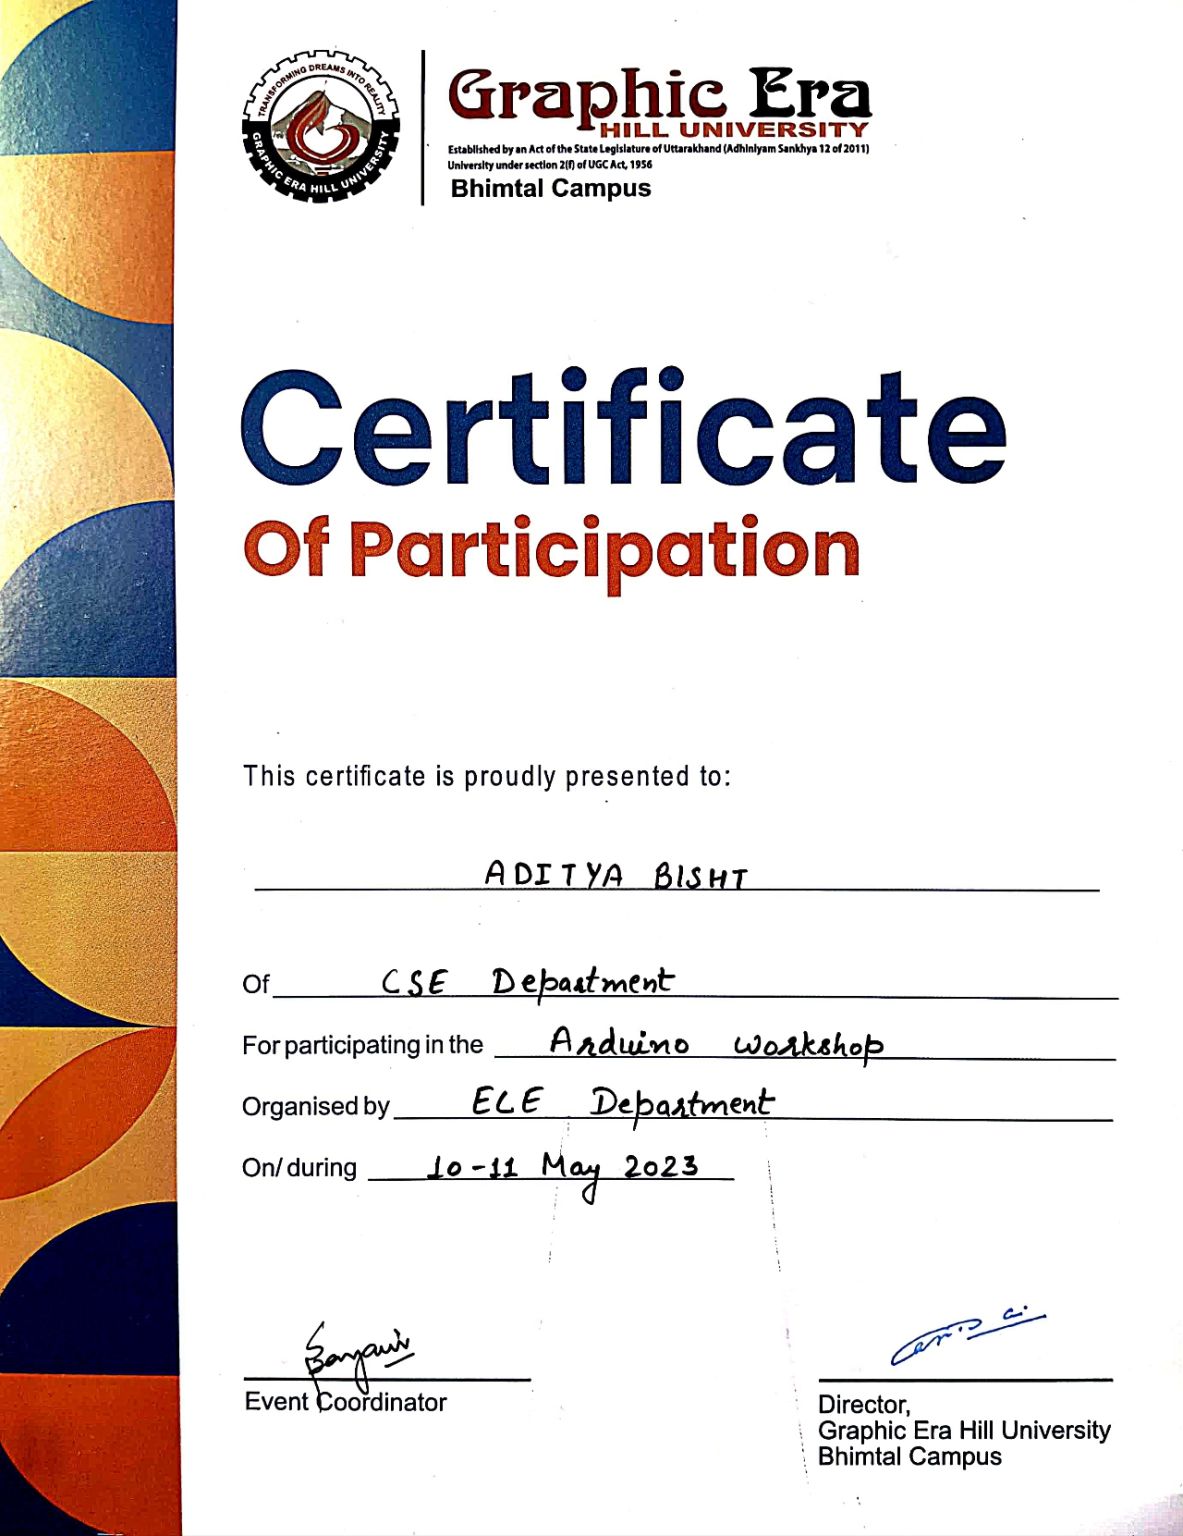 TRANSFORMING DREAMS INTO REALITY
GRAPHIC ERA HILL UNIVERSITY
Graphic Era
HILL UNIVERSITY
Established by an Act of the State Legislature of Uttarakhand (Adhiniyam Sankhya 12 of 2011)
University under section 2(f) of UGC Act, 1956
Bhimtal Campus
Certificate
Of Participation
This certificate is proudly presented to:
ADITYA BISHT
Of CSE Department
For participating in the Arduino workshop
Organised by ECE Department
On/ during 10-11 May 2023
Event Coordinator
Director,
Graphic Era Hill University
Bhimtal Campus